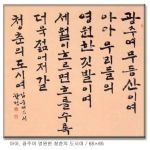 광주여 무등산이여
아아 우리들의
영원한 깃발이여
세월이 흐르면 흐를수록
더욱 젊어져 갈
청춘의 도시여
아아, 광주여 영원한 청춘의 도시여 / 68×65